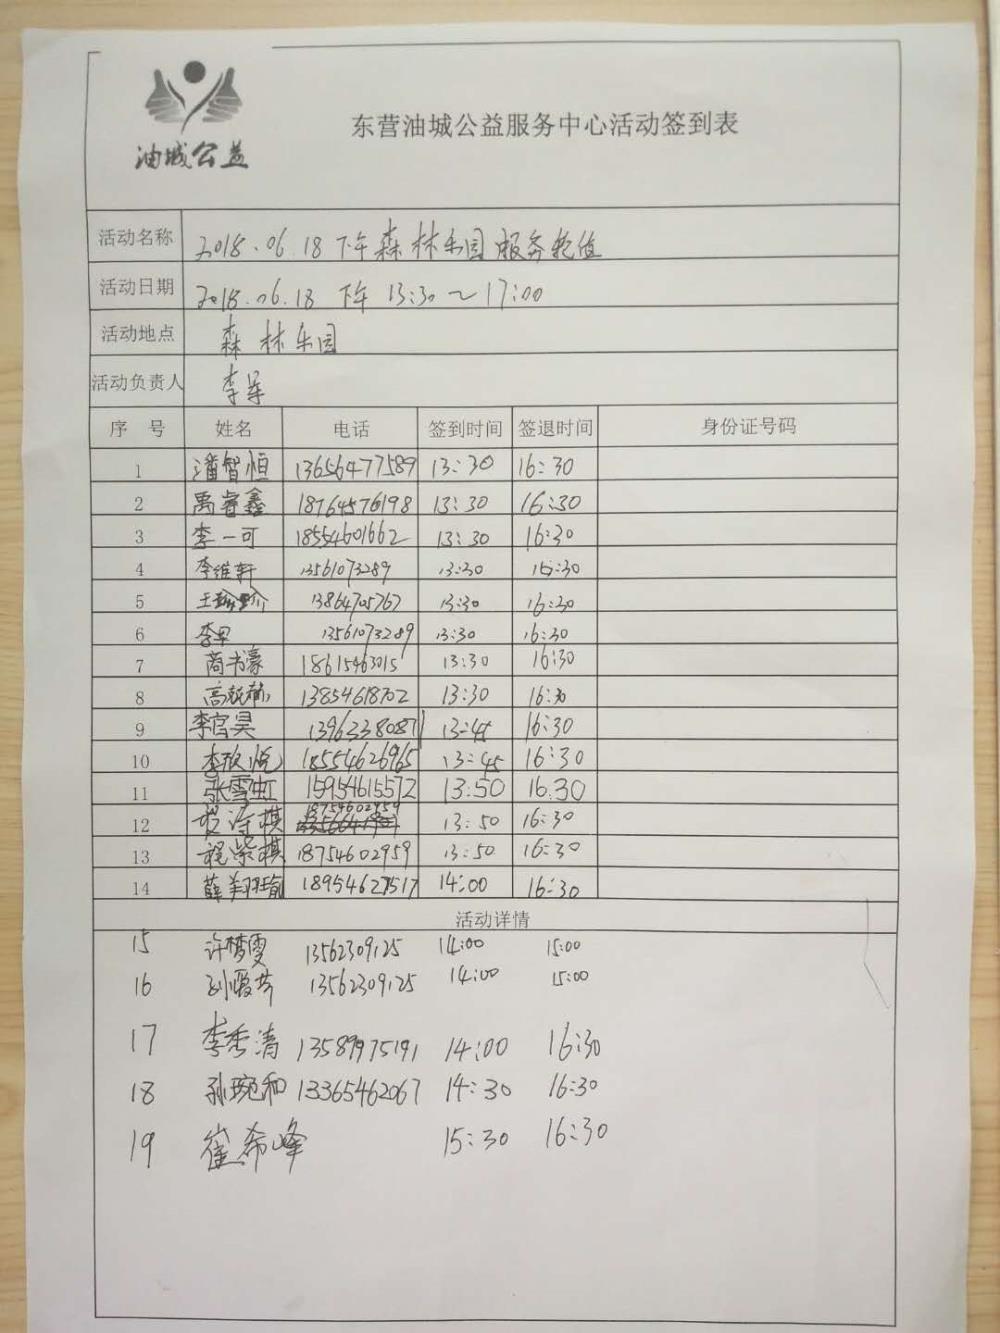 油城公益
东营油城公益服务中心活动签到表
活动名称 2018.06.18 下午森林乐园服务轮值
活动日期 2018.06.18 下午 13:30~17:00
活动地点 森林乐园
活动负责人 李军
序 号 姓名 电话 签到时间 签退时间 身份证号码
1 潘智恒 13656477589 13:30 16:30
2 禹睿鑫 18764576198 13:30 16:30
3 李一可 18554601662 13:30 16:30
4 李维轩 13561073289 13:30 16:30
5 王 13864705767 13:30 16:30
6 李 13561073289 13:30 16:30
7 商书豪 18615463015 13:30 16:30
8 高 13854618702 13:30 16:30
9 李官昊 13963380871 13:45 16:30
10 李玫悦 18554626965 13:45 16:30
11 张雪虹 15954615572 13:50 16.30
12 程诗棋 18754602959 13:50 16:30
13 程紫棋 18754602959 13:50 16:30
14 薛翔瑜 18954627517 14:00 16:30
活动详情
15 许梦雯 13562309125 14:00 15:00
16 孙爱芹 13562309125 14:00 15:00
17 李秀清 13589975191 14:00 16:30
18 孙琬和 13365462067 14:30 16:30
19 崔希峰 15:30 16:30